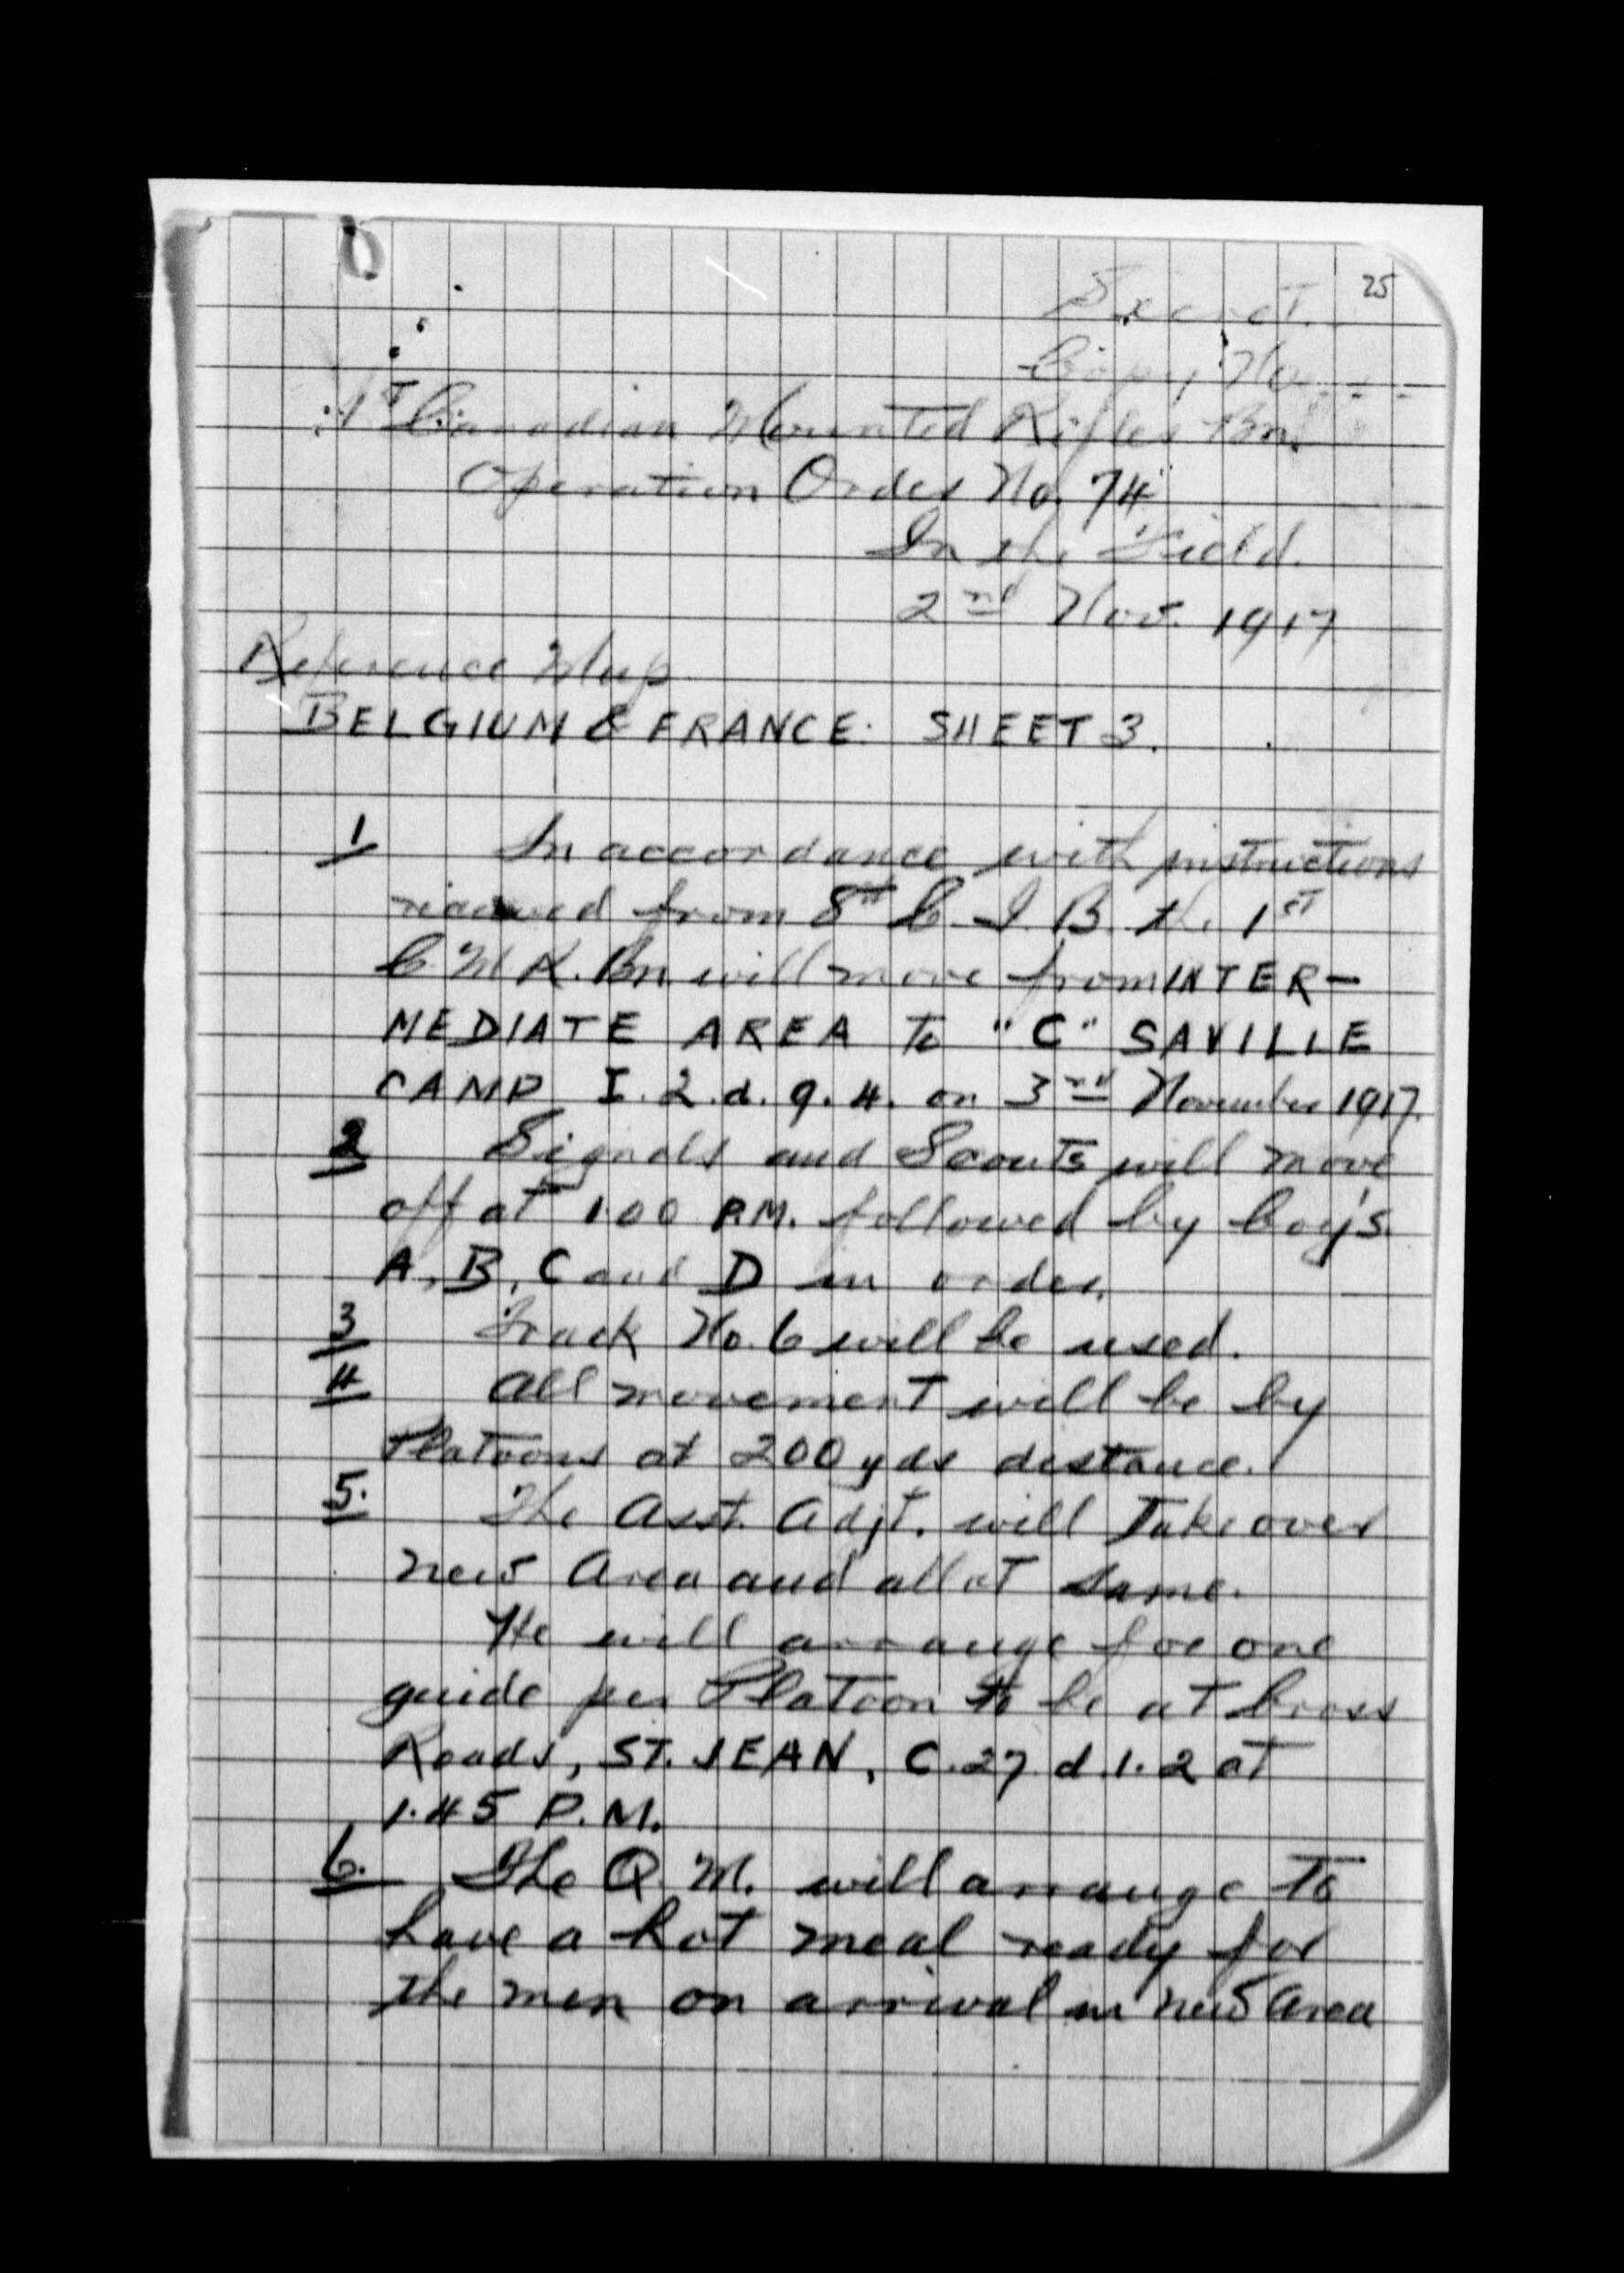 25
Secret.
Copy No. ....
1ST Canadian Mounted Rifles Bn.
Operation Order No. 74
In the Field.
2nd Nov. 1917
Reference Map
BELGIUM & FRANCE. SHEET 3.
1 In accordance with instructions
received from 8th C. I. B. the 1ST
C.M.R. Bn will move from INTER-
MEDIATE AREA to "C" SAVILLE
CAMP I.2.d.9.4. on 3rd November 1917.
2 Signals and Scouts will move
off at 1.00 P.M. followed by Coy's.
A, B, C and D in order.
3 Track No. 6 will be used.
4 All movement will be by
Platoons at 200 yds distance.
5. The Asst. Adjt. will Take over
new Area and allot same.
He will arrange for one
guide per Platoon to be at Cross
Roads, ST. JEAN, C.27.d.1.2 at
1.45 P.M.
6. The Q.M. will arrange To
have a hot meal ready for
the men on arrival in new Area